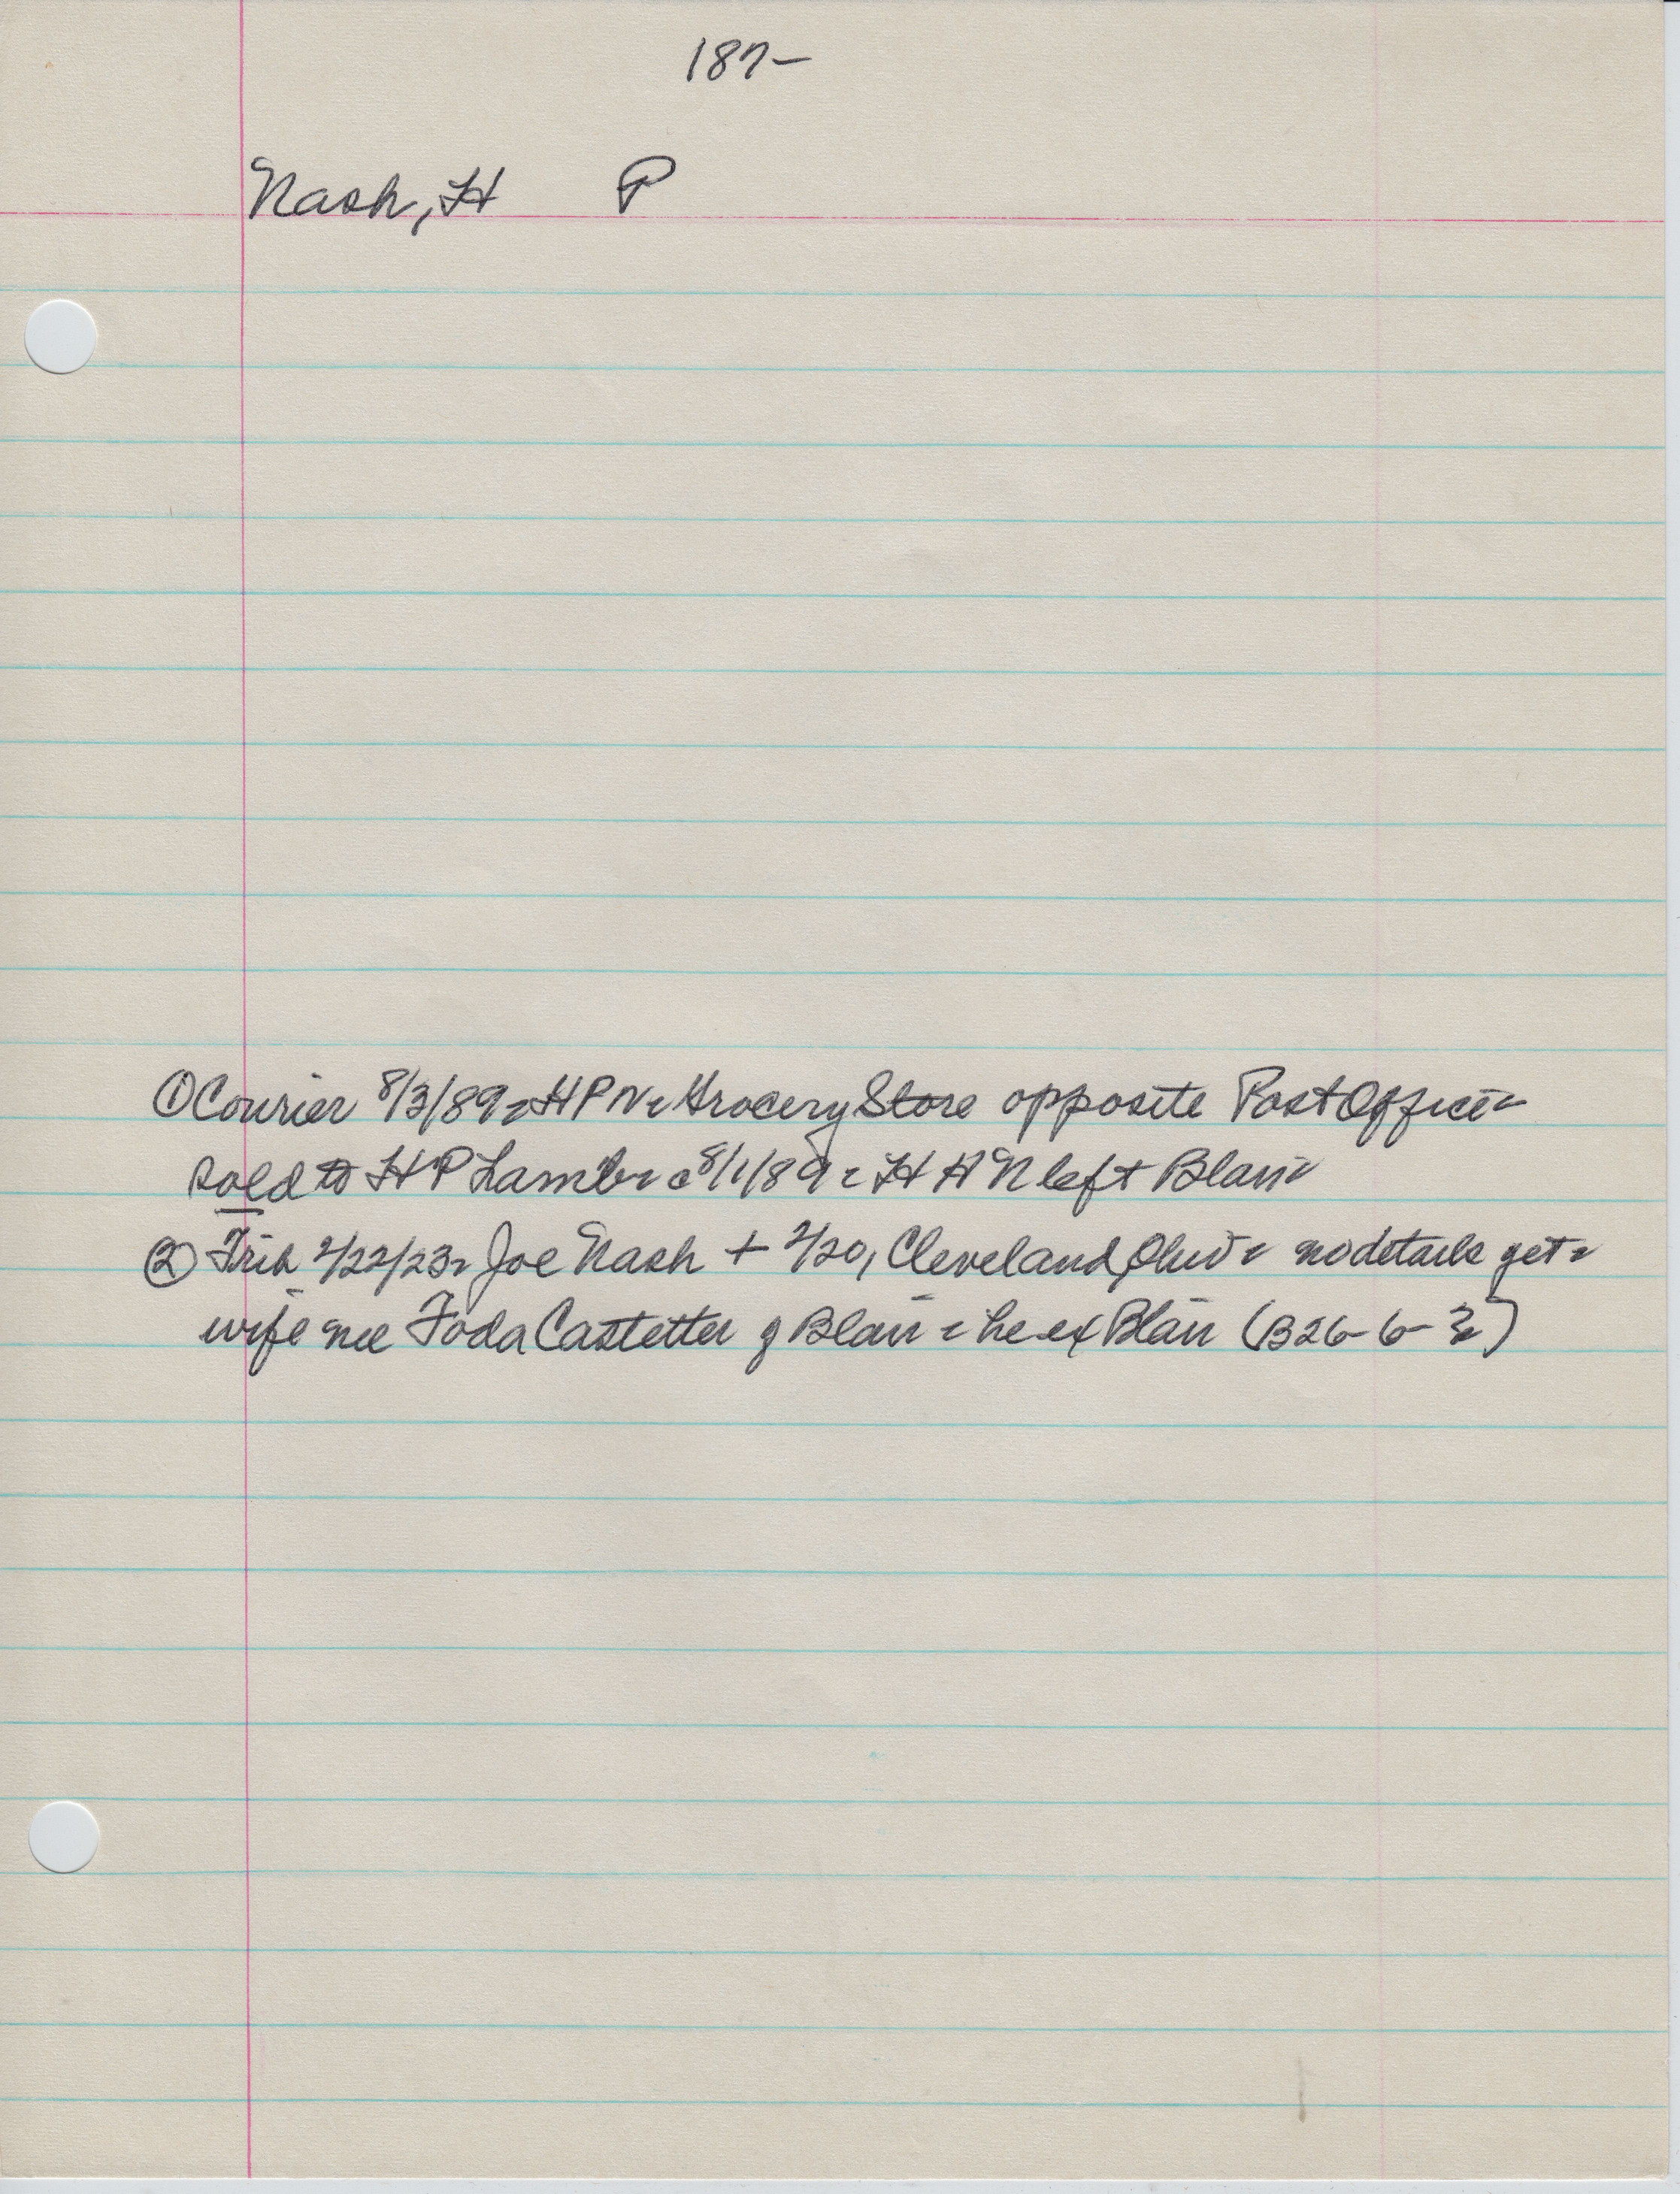 187-
Nash, H P
① Courier 8/3/89 - H P N - Grocery Store opposite Post Office -
sold to H P Lamb - 8/1/89 - H H N left Blair -
② Trib 2/22/23 - Joe Nash + 2/20, Cleveland, Ohio - no details yet -
wife nee Foda Castetter of Blair - he ex Blair (B26-6-3)